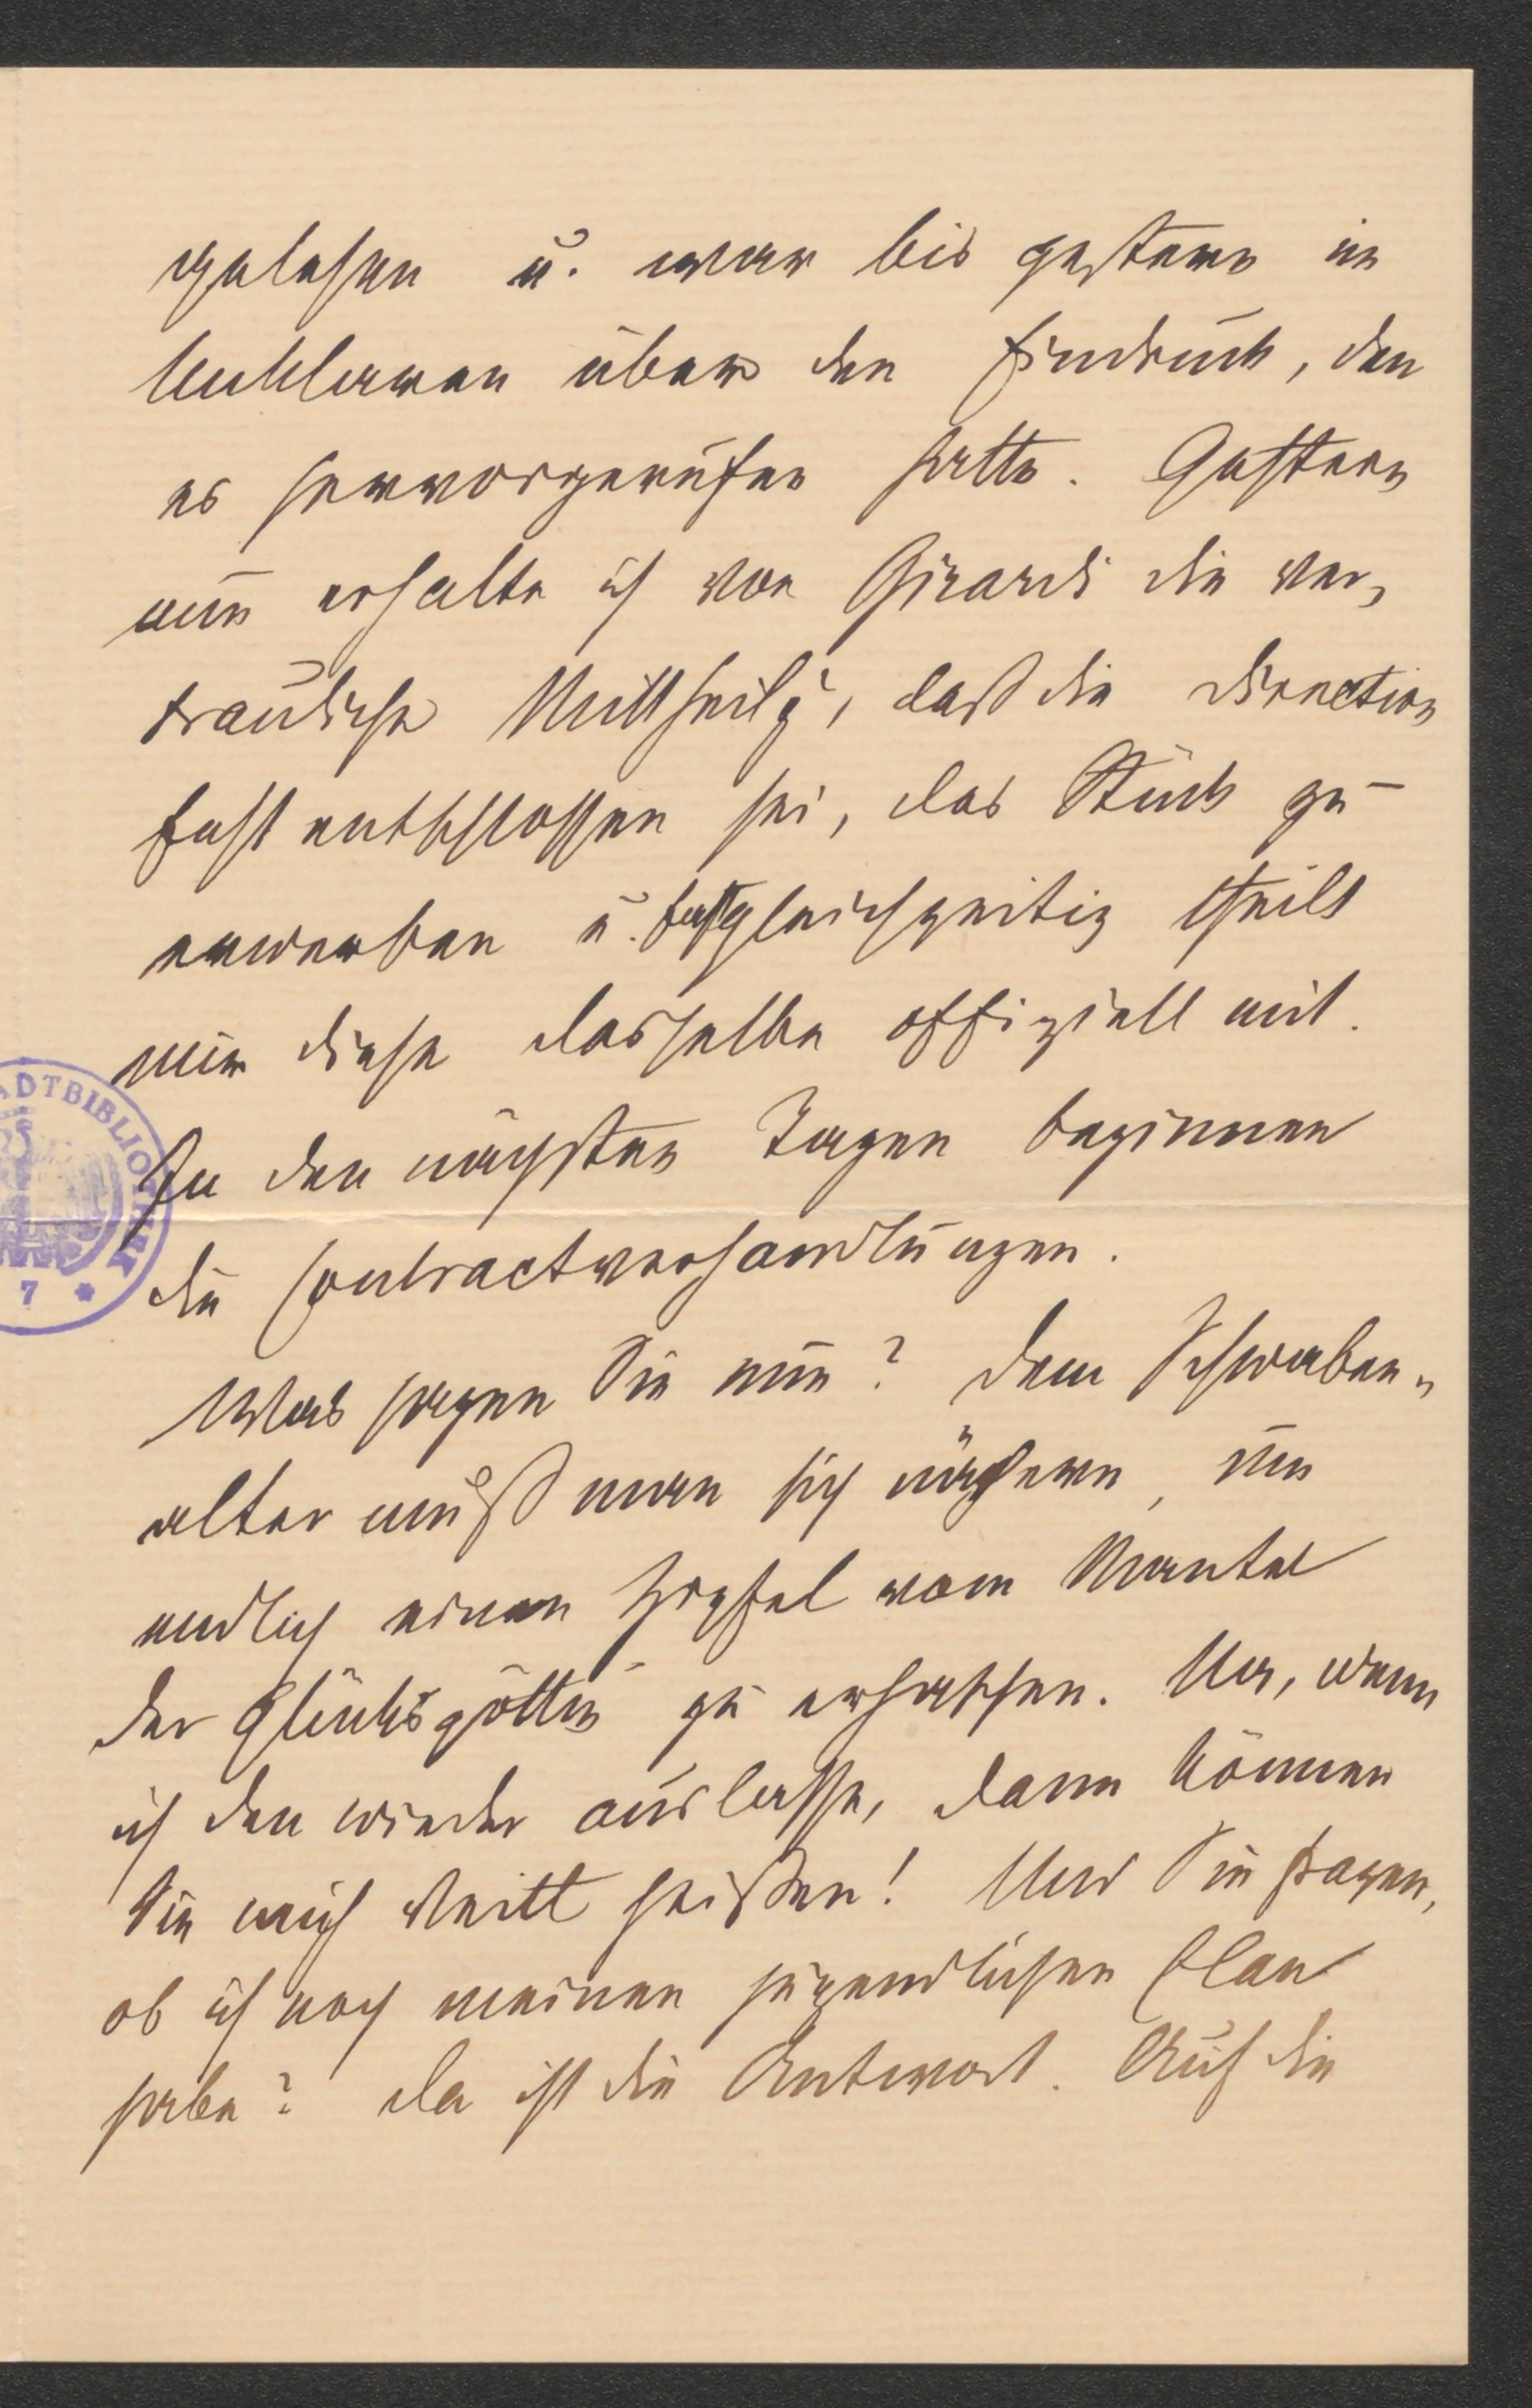 gelesen u. war bis gestern im
Unklaren über den Eindruck, den
es hervorgerufen hatte. Gestern
nun erhalte ich von Girardi die ver-
trauliche Mittheilg, daß die Direction
fest entschlossen sei, das Stück zu
erwerben u. fast gleichzeitig theilt
mir diese dasselbe offiziell mit.
In den nächsten Tagen beginnen
die Contractverhandlungen.
Was sagen Sie nun? Dem Schwaben-
alter muß man sich nähern, um
endlich einen Zipfel vom Mantel
der Glücksgöttin zu erhaschen. Na, wenn
ich den wieder auslasse, dann können
Sie mich Veitl heißen! Und Sie fragen,
ob ich noch meinen jugendlichen Elan
habe? Da ist die Antwort. Auf die
DTBIBLIOTHEK
7 *